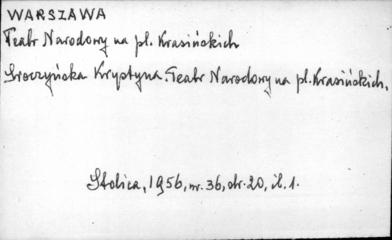 WARSZAWA
Teatr Narodowy na pl. Krasińskich
Sroczyńska Krystyna. Teatr Narodowy na pl. Krasińskich.
Stolica, 1956, nr. 36, str. 20, il. 1.